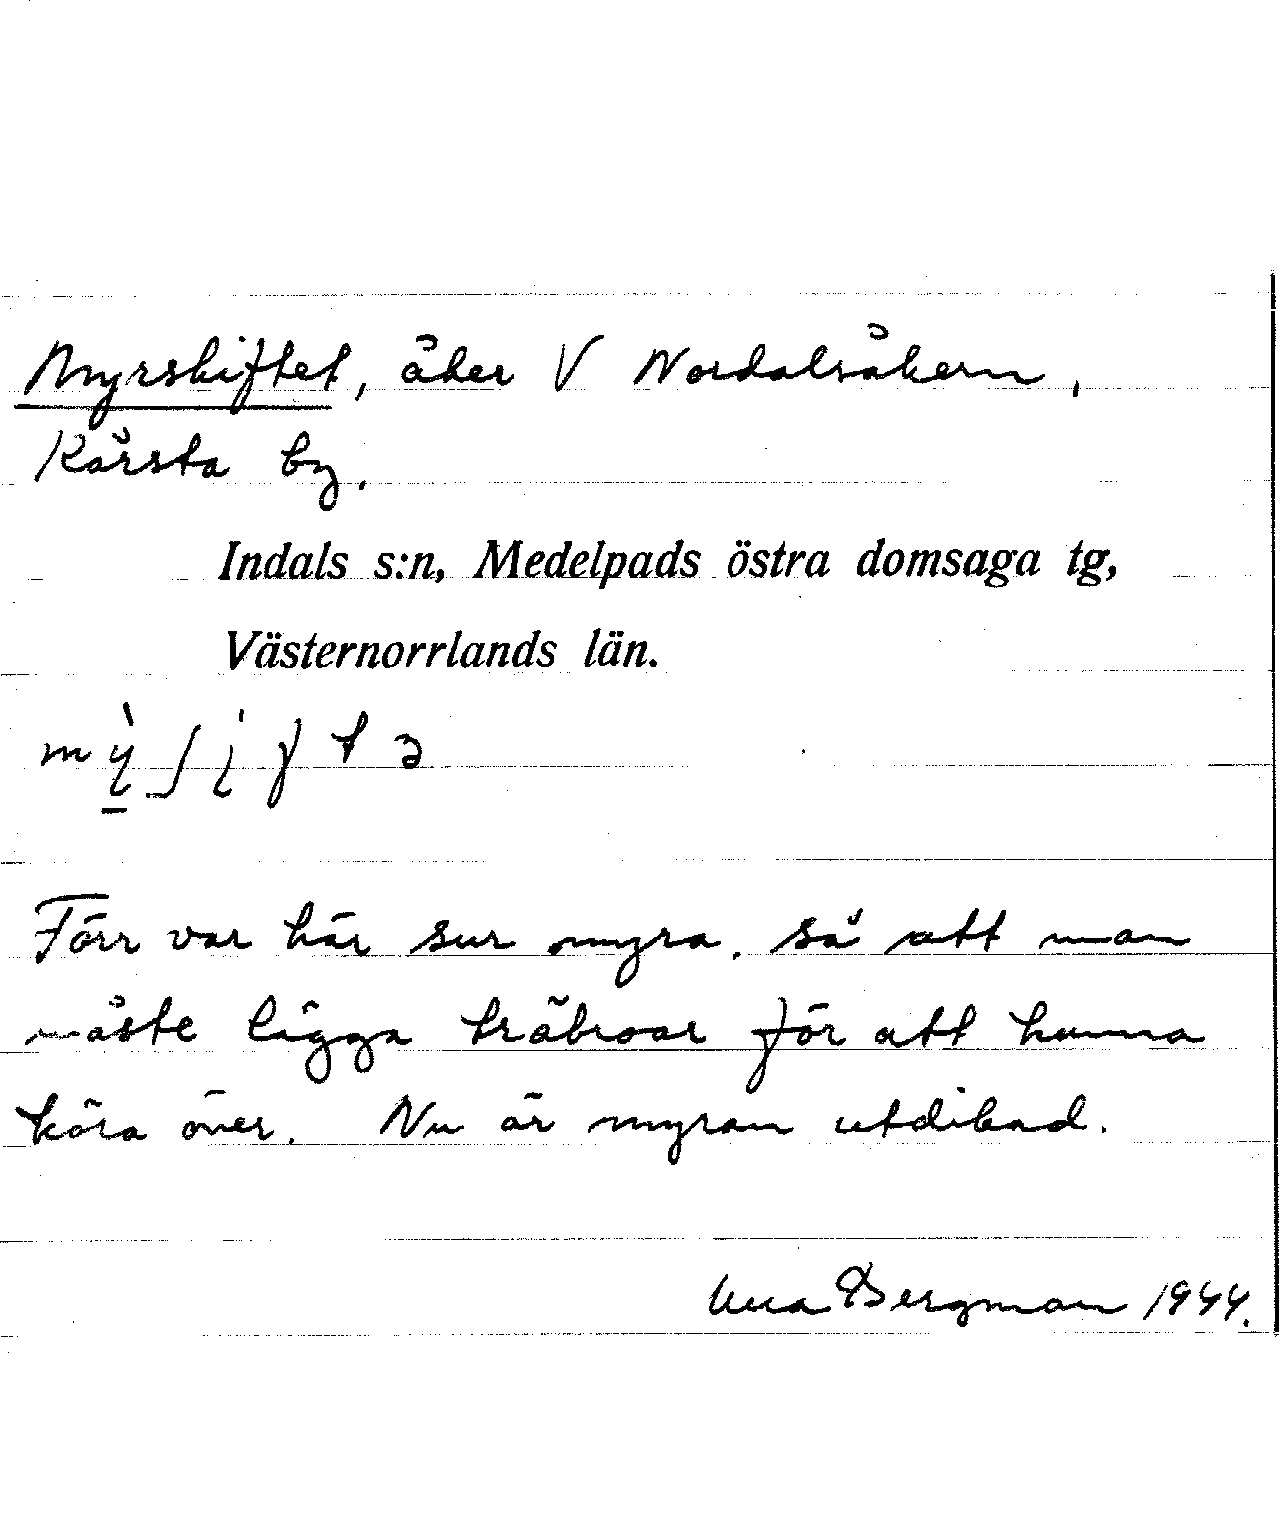 Myrskiftet, åker V Nordalsåkern,
Kårsta by.
Indals s:n, Medelpads östra domsaga tg,
Västernorrlands län.
Förr var här sur myra, så att man
måste lägga träbroar för att kunna
köra över. Nu är myran utdikad.
Bergman 1944.